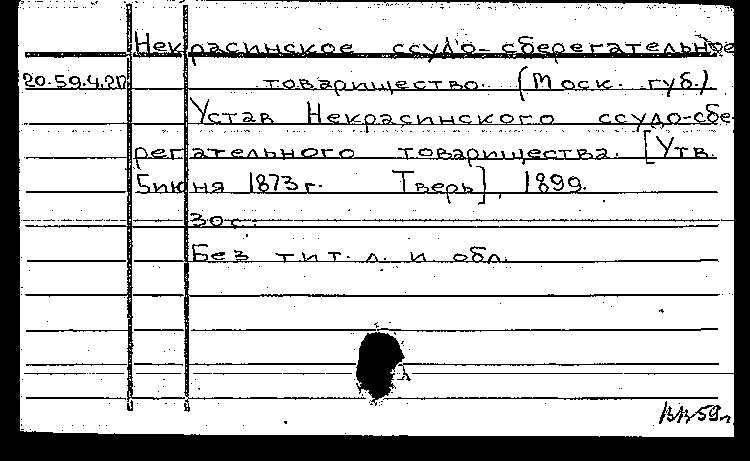 Некрасинское ссудо-сберегательное
20.59.4.217 товарищество. (Моск. губ.)
Устав Некрасинского ссудо-сбе-
регательного товарищества. [Утв.
5июня 1873г. Тверь], 1899.
30с.
Без тит. л. и обл.